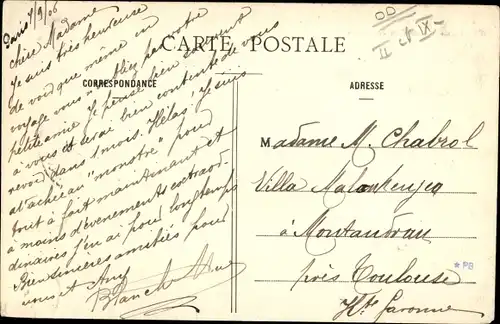 Paris 7/9/06
Chère Madame
Je suis très heureuse
de voir que même en
voyage vous n'oubliez pas votre
petite amie. Je pense bien souvent
à vous et serai bien contente de vous
revoir dans 1 mois. Hélas! Je suis
attachée au "monstre" pour
tout à fait maintenant et
à moins d'évènements extraord-
dinaires j'en ai pour longtemps
Bien sincères amitiés pour
vous et
Blanche
CARTE POSTALE
CORRESPONDANCE
ADRESSE
Madame M. Chabrol
Villa
à Montaudran
près Toulouse
Hte Garonne
*PB